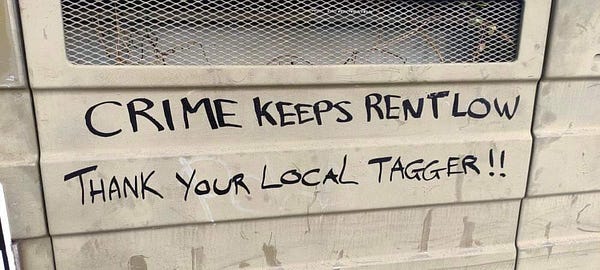 CRIME KEEPS RENT LOW
THANK YOUR LOCAL TAGGER!!